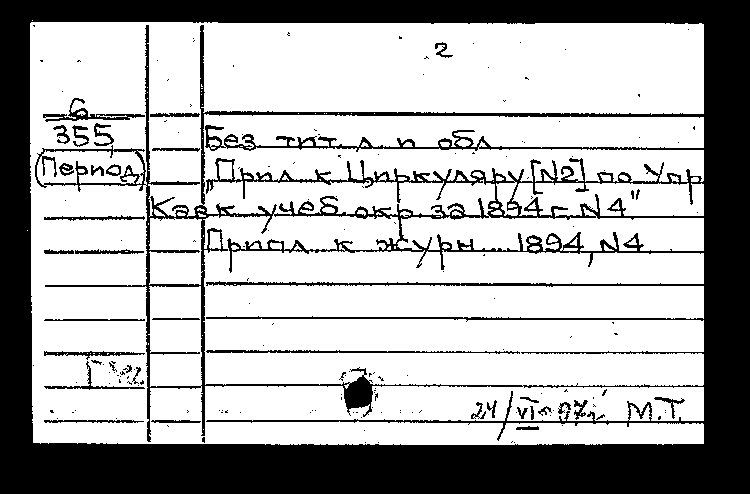 2
6
355
(Период)
Без тит. л. и обл.
"Прил. к Циркуляру [N2] по Упр
Кавк. учеб. окр. за 1894 г. N 4"
Прил. к журн... 1894, N4
24/VI-97г. М.Т.